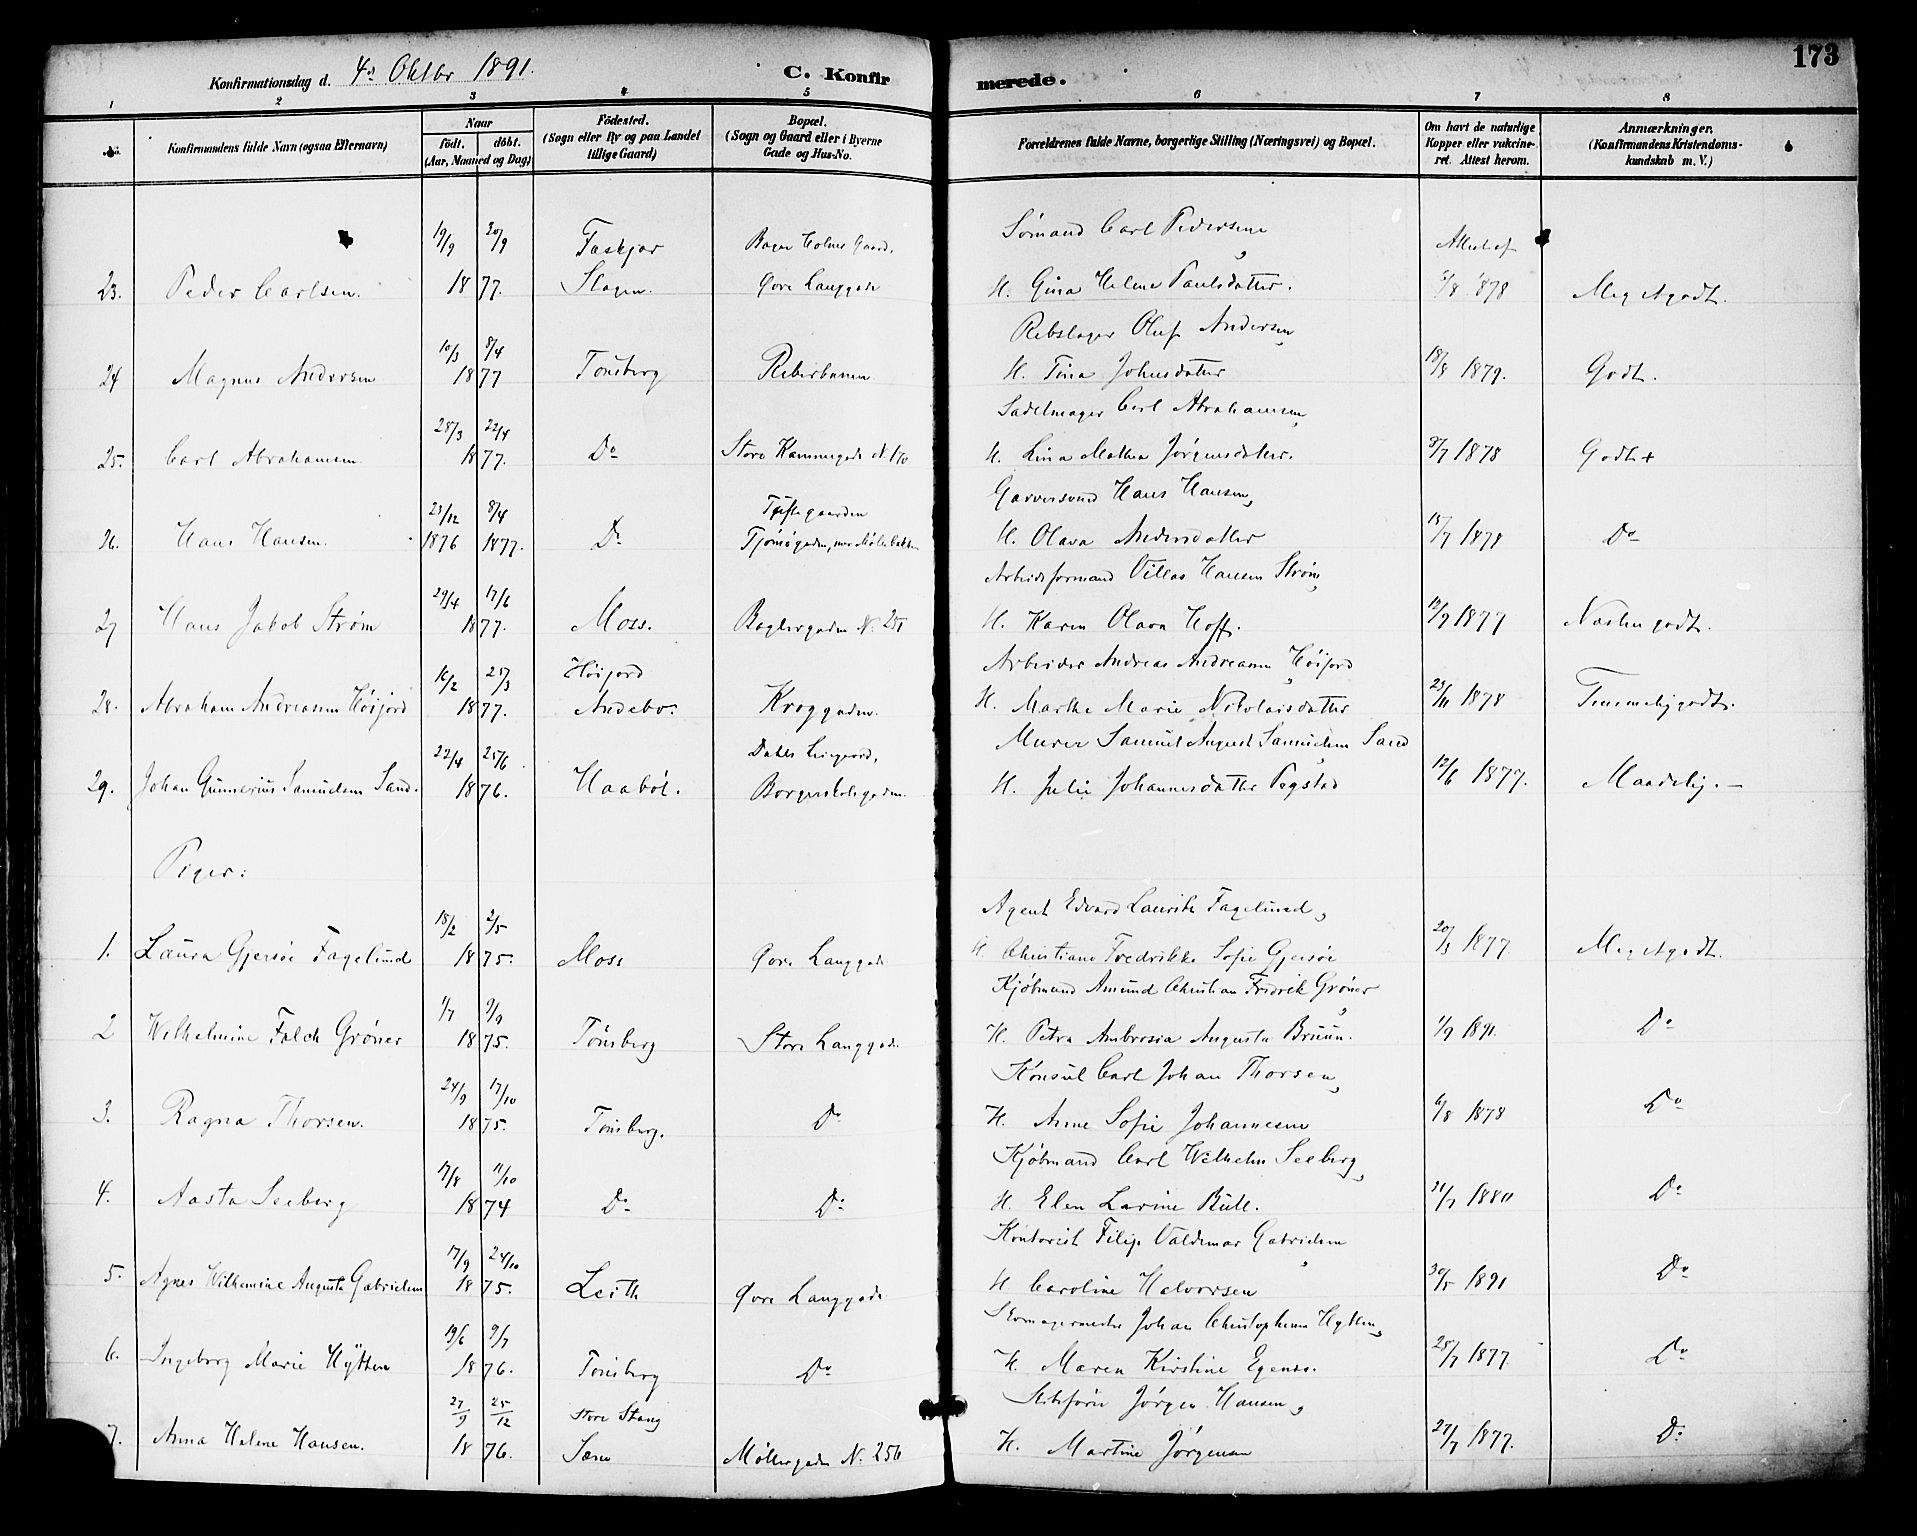 173
Konfirmationsdag d. 4de Oktbr 1891.
C. Konfirmerede.
1 2 3 4 5 6 7 8
No.
Konfirmandens fulde Navn (ogsaa Efternavn)
Naar
født. døbt.
(Aar, Maaned og Dag)
Fødested.
(Sogn eller By og paa Landet
tillige Gaard)
Bopæl.
(Sogn og Gaard eller i Byerne
Gade og Hus-No.
Forældrenes fulde Navne, borgerlige Stilling (Næringsvei) og Bopæl.
Om havt de naturlige
Kopper eller vakcine-
ret. Attest herom.
Anmærkninger.
(Konfirmandens Kristendoms-
kundskab m. V.)
19/9 30/9 Sømand Carl Pedersen, Attest af
23. Peder Carlsen. 1877. Slagen. Øvre Langgade H. Gina Helene Paulsdatter. 1878 Meget godt.
10/3 8/4 Rebslager Oluf Andersen,
24 Magnus Andersen 1877 Tønsberg Reberbanen H. Tina Johnsdatter 18/8 1879. Godt.
28/3 22/4 Sadelmager Carl Abrahamsen,
25. Carl Abrahamsen. 1877. Do Store Kammegade N. 170 H. Lina Mathea Jørgensdatter. 3/7 1878 Godt +
23/12 8/4 Garversvend Hans Hansen,
26. Hans Hansen. 1876 1877. Do Tjømøgaden, H. Olava Andersdatter 15/7 1878 Do
29/4 17/6 Arbeidsformand Hansen Strøm,
27 Hans Jakob Strøm 1877. Moss. Baglergaden N. 251 H. Karen Olava Hoff. 12/9 1877 Næsten godt.
16/2 25/3 Høijord Arbeider Andreas Andreasen Høijord,
28. Abraham Andreasen Høijord 1877. Andebo. Kroggaden. H. Marthe Marie Nikolaisdatter 23/11 1878 Temmelig godt.
22/4 25/6 Murer Samuel August Samuelsen Sand
29. Johan Gunnerius Samuelsen Sand. 1876. Haabøl. Borgerskolegaden. H. Julie Johannesdatter 12/6 1877. Maadelig. –
Piger:
18/2 2/5 Agent Edvard Lauritz Fagelund,
1. Laura Gjersøe Fagelund 1875. Moss Øvre Langgade H. Christiane Fredrikke Sofie Gjersøe 20/3 1877 Meget godt.
1/7 9/9 Kjøbmand Amund Christian Fredrik Grøner,
2 Wilhelmine Falch Grøner 1875. Tønsberg Store Langgade. H. Petra Ambrosia Augusta Bruun. 1/9 1891. Do
24/9 17/10 Konsul Carl Johan Thorsen,
3. Ragna Thorsen. 1875. Tønsberg. Do H. Anne Sofie Johannesen 6/8 1878 Do
17/8 11/10 Kjøbmand Carl Wilhelm Seeberg,
4. Aasta Seeberg 1874 Do Do H. Elen Lavine Bull. 21/7 1880 Do
17/9 24/10 Kontorist Filip Valdemar Gabrielsen,
5. Agnes Wilhemine Augusta Gabrielsen 1875. Leith Øvre Langgade H. Caroline Halvorsen 30/5 1891 Do
19/6 9/7 Skomagermester Johan Christophersen Hytten,
6. Ingeborg Marie Hytten 1876. Tønsberg Do H. Maren Kirstine Egenæs. 25/7 1877 Do
27/9 25/12 Store Stang Skibsfører Jørgen Hansen,
7. Anna Helene Hansen. 1876. Sem Møllergaden N. 256 H. Martine Jørgensen 27/7 1877. Do